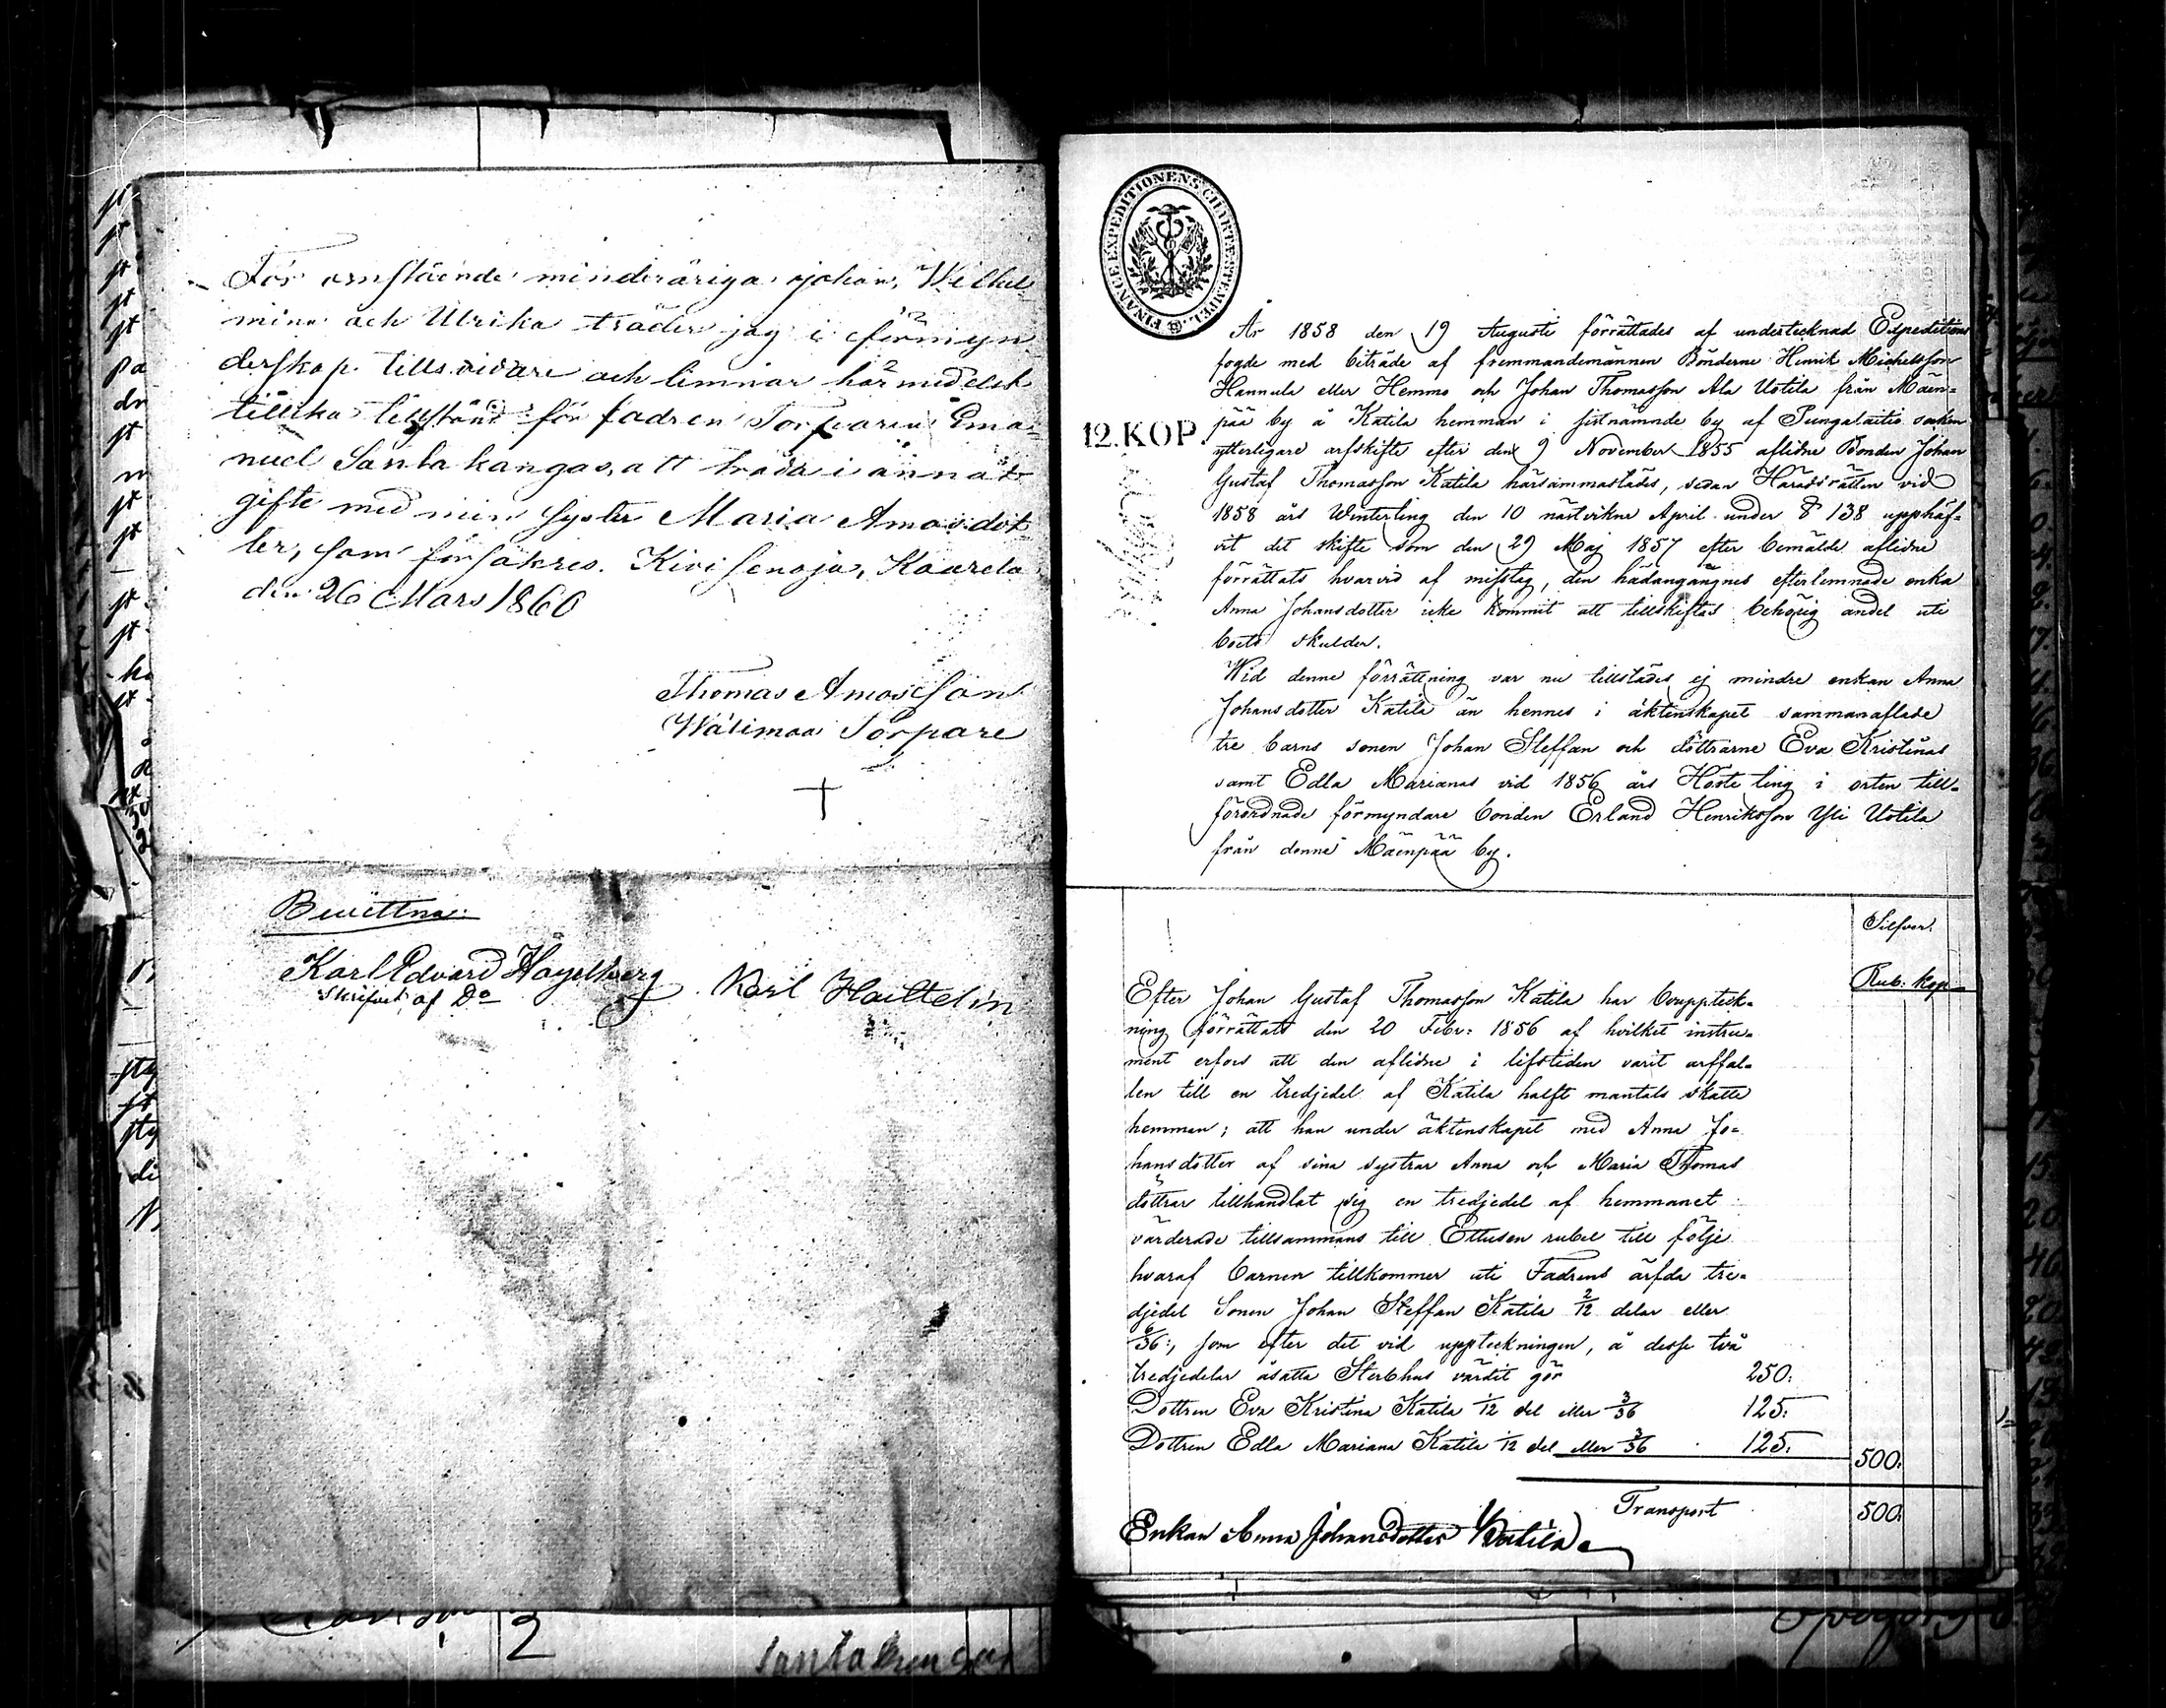 För omstående minderåriga Johan, Wilhel-
mina och Ulrika träder jag i förmyn
derskap tillsvidare och lemnar härmedelst
tillika tillstånd för fadren Torparen Ema-
nuel Santakangas, att träda i annat
gifte med min syster Maria Amosdot
ter, som försäkras. Kivisenoja, Kaarela
den 26 Mars 1860
Thomas Amosson
Wälimaa Torpare
Bevittna:
Karl Edvard Hägelberg
Skrifvet af Do
Karl Haittelin
2
Santakangas
FINANCE EXPEDITIONENS CHARTÆ STEMPEL
12.KOP.
År 1858 den 19 Augusti förrättades af undertecknad Expeditions
fogde med biträde af fremmandemännen Bönderne Henrik Michelsson
Hannula eller Hemmo och Johan Thomasson Ala Uotila från Mäen-
pää by å Katila hemman i sistnämnde by af Pungalaitio socken
ytterligare arfskifte efter den 9 November 1855 aflidne Bonden Johan
Gustaf Thomasson Katila härsammastädes, sedan Häradsrätten vid
1858 års Winterting den 10 nästvikne April under § 138 upphäf-
vit det skifte som den 29 Maj 1857 efter bemälde aflidne
förrättats hvarvid af misstag, den hädangångnes efterlemnade enka
Anna Johansdotter icke kommit att tillskiftas behörig andel uti
boets skulder.
Wid denne förrättning var nu tillstädes ej mindre enkan Anna
Johansdotter Katila än hennes i äktenskapet sammanaflade
tre barns sonen Johan Steffan och döttrarne Eva Kristinas
samt Edla Marianas vid 1856 års Höste ting i orten till-
förordnade förmyndare bonden Erland Henriksson Yli Uotila
från denne Mäenpää by.
Silfver.
Rub. kop
Efter Johan Gustaf Thomasson Katila har bouppteck-
ning förrättats den 20 Febr: 1856 af hvilket instru-
ment erfors att den aflidne i lifstiden varit arffal-
len till en tredjedel af Katila halft mantals skatte
hemman; att han under äktenskapet med Anna Jo-
hansdotter af sina systrar Anna och Maria Thomas
döttrar tillhandlat sig en tredjedel af hemmanet
värderade tillsammans till Ettusen rubel till följe
hvaraf barnen tillkommer uti Fadrens ärfda tre-
djedel Sonen Johan Steffan Katila 2/12 delar eller
6/36:, som efter det vid uppteckningen, å desse två
tredjedelar åsatta Sterbhus värdet gör 250:
Dottren Eva Kristina Katila 1/12 del eller 3/36 125:
Dottren Edla Mariana Katila 1/12 del eller 3/36 125: 500:
Transport 500:
Enkan Anna Johansdotter Katila